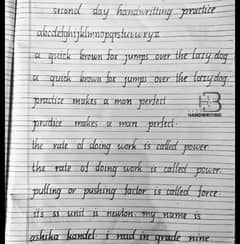 second day handwritting practice
abcdefghijklmnopqrstuvwxyz
a quick brown fox jumps over the lazy dog.
a quick brown fox jumps over the lazy dog.
practice makes a man perfect
HANDWRITING
practice makes a man perfect.
the rate of doing work is called power.
the rate of doing work is called power.
pulling or pushing factor is called force.
its si unit is newton. my name is
ashika kandel i read in grade nine.